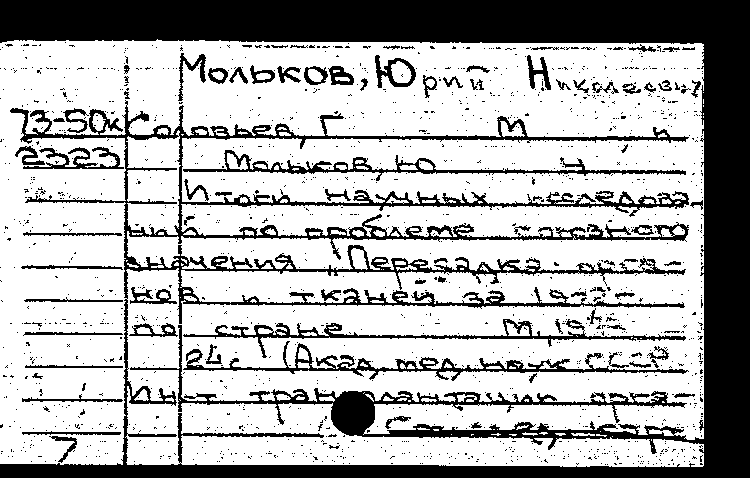 Мольков, Юрий Николаевич
73-50к Соловьев, Г М и
2323 Мольков, Ю Н
Итоги научных исследова
ний по проблеме союзного
значения "Пересадка орга-
нов и тканей за
по стране. М, 19
24с (Акад. мед. наук СССР
Ин-т трансплантации орга-
См.
7